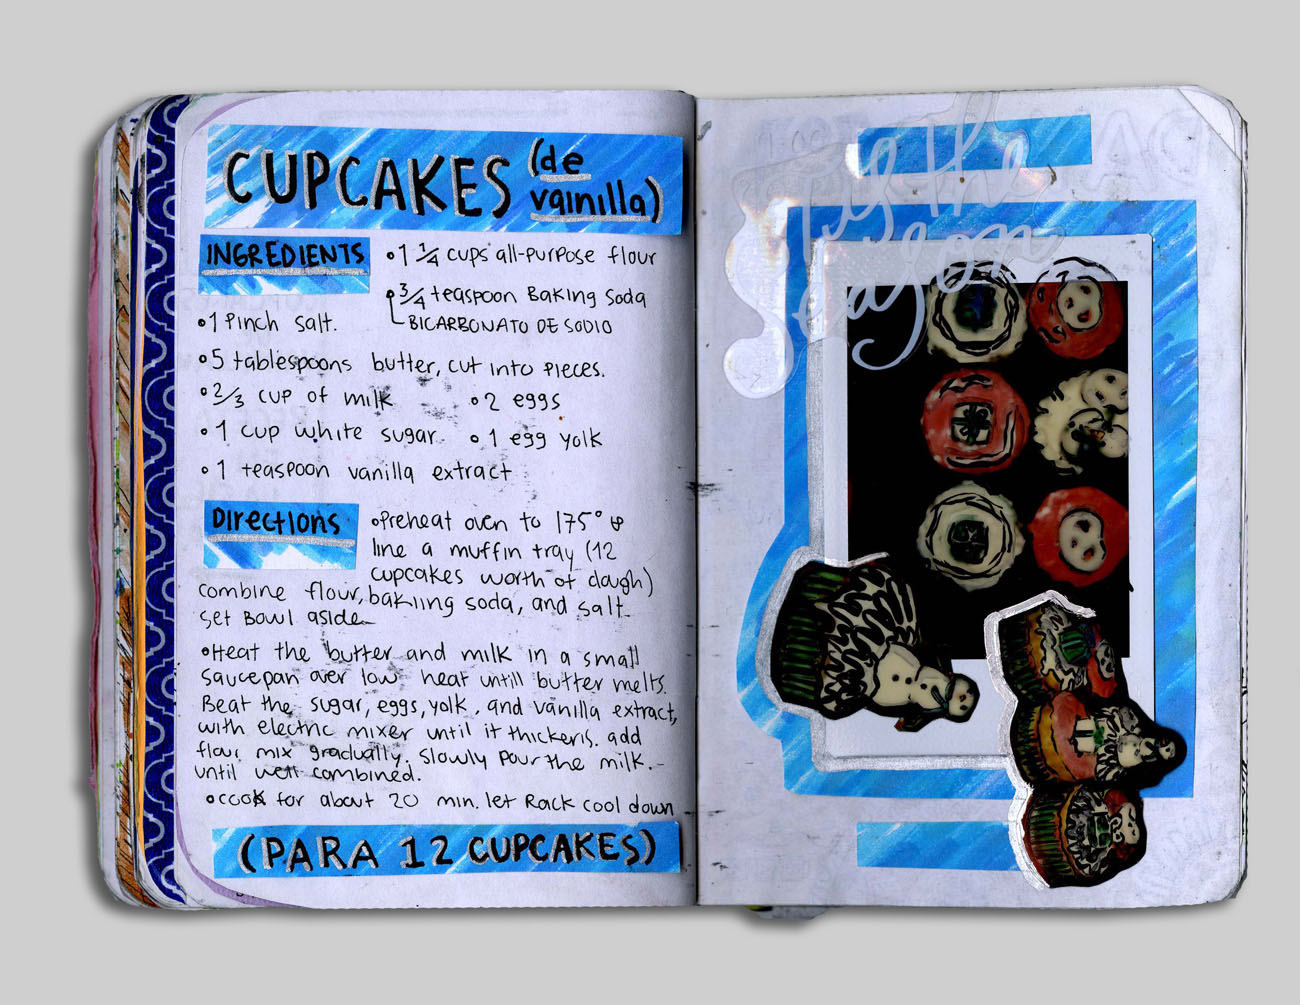 CUPCAKES (de vainilla)
INGREDIENTS
• 1 1/4 cups all-purpose flour
• 3/4 teaspoon Baking Soda
BICARBONATO DE SODIO
• 1 Pinch salt.
• 5 tablespoons butter, cut into pieces.
• 2/3 cup of milk
• 2 eggs
• 1 cup white sugar
• 1 egg yolk
• 1 teaspoon vanilla extract
Directions
• Preheat oven to 175° &
line a muffin tray (12
cupcakes worth of dough)
combine flour, baking soda, and salt.
set Bowl aside
• Heat the butter and milk in a small
saucepan over low heat until butter melts.
Beat the sugar, eggs, yolk, and vanilla extract,
with electric mixer until it thickens. add
flour mix gradually. Slowly pour the milk.
until well combined.
• cook for about 20 min. let Rack cool down
(PARA 12 CUPCAKES)
Tis the
season